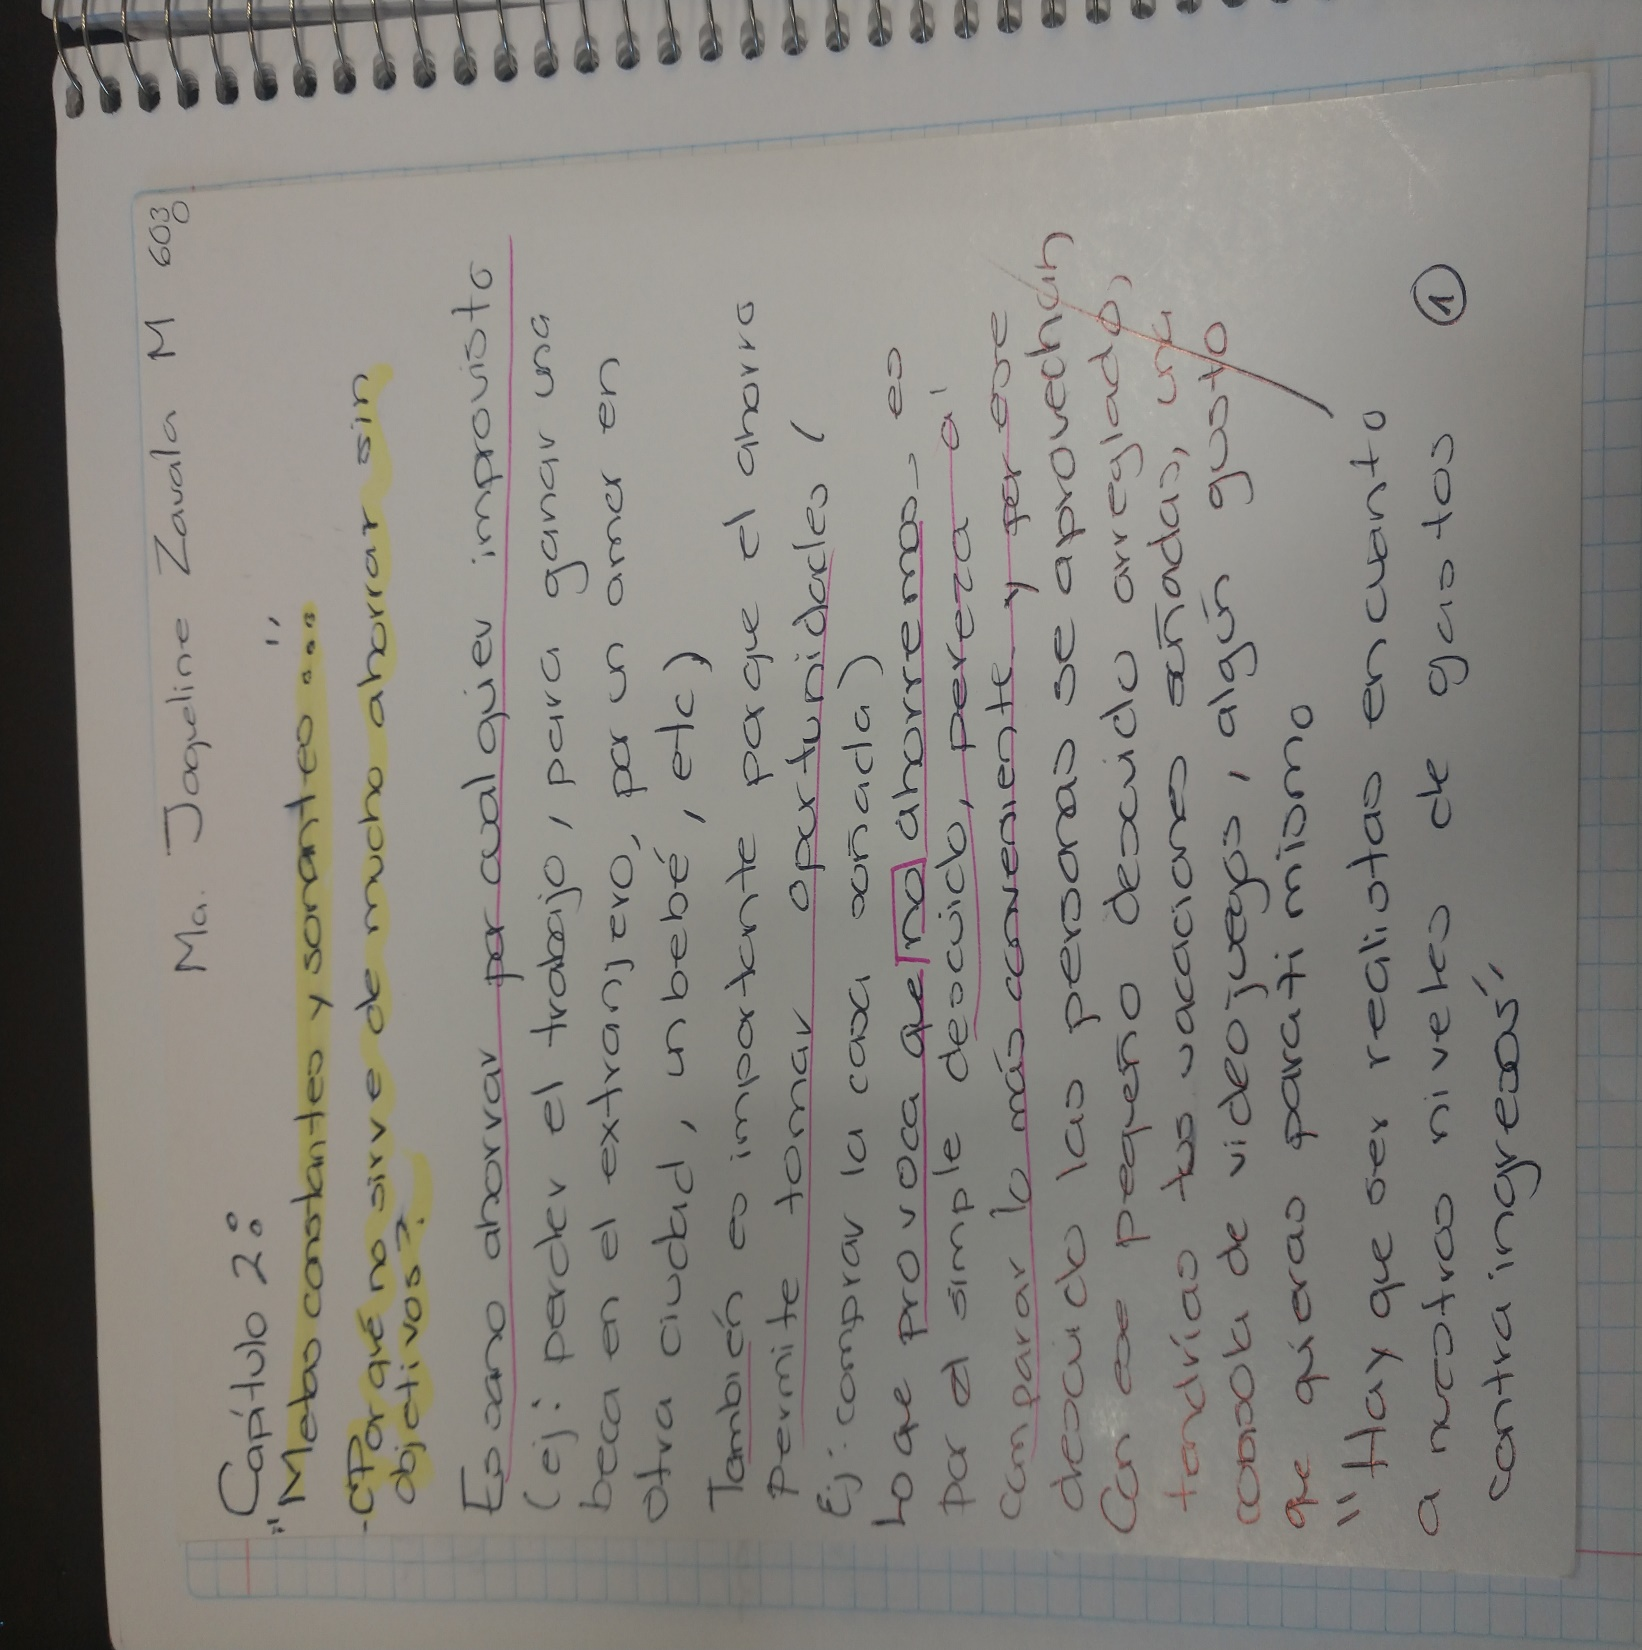 Ma. Jaqueline Zavala M 6030
Capítulo 2:
"Metas constantes y sonantes..."
-¿Por qué no sirve de mucho ahorrar sin
objetivos?
Es sano ahorrar por cualquier improvisto
(ej: perder el trabajo, para ganar una
beca en el extranjero, por un amor en
otra ciudad, un bebé, etc)
También es importante porque el ahorro
permite tomar oportunidades (
Ej: comprar la casa soñada)
Lo que provoca que no ahorremos es
por el simple descuido, pereza o
comparar lo más conveniente y por ese
descuido las personas se aprovechan
Con ese pequeño descuido arreglado,
tendrías tus vacaciones soñadas, una
consola de videojuegos, algún gusto
que quieras para ti mismo
"Hay que ser realistas en cuanto
a nuestros niveles de gastos
contra ingresos"
1